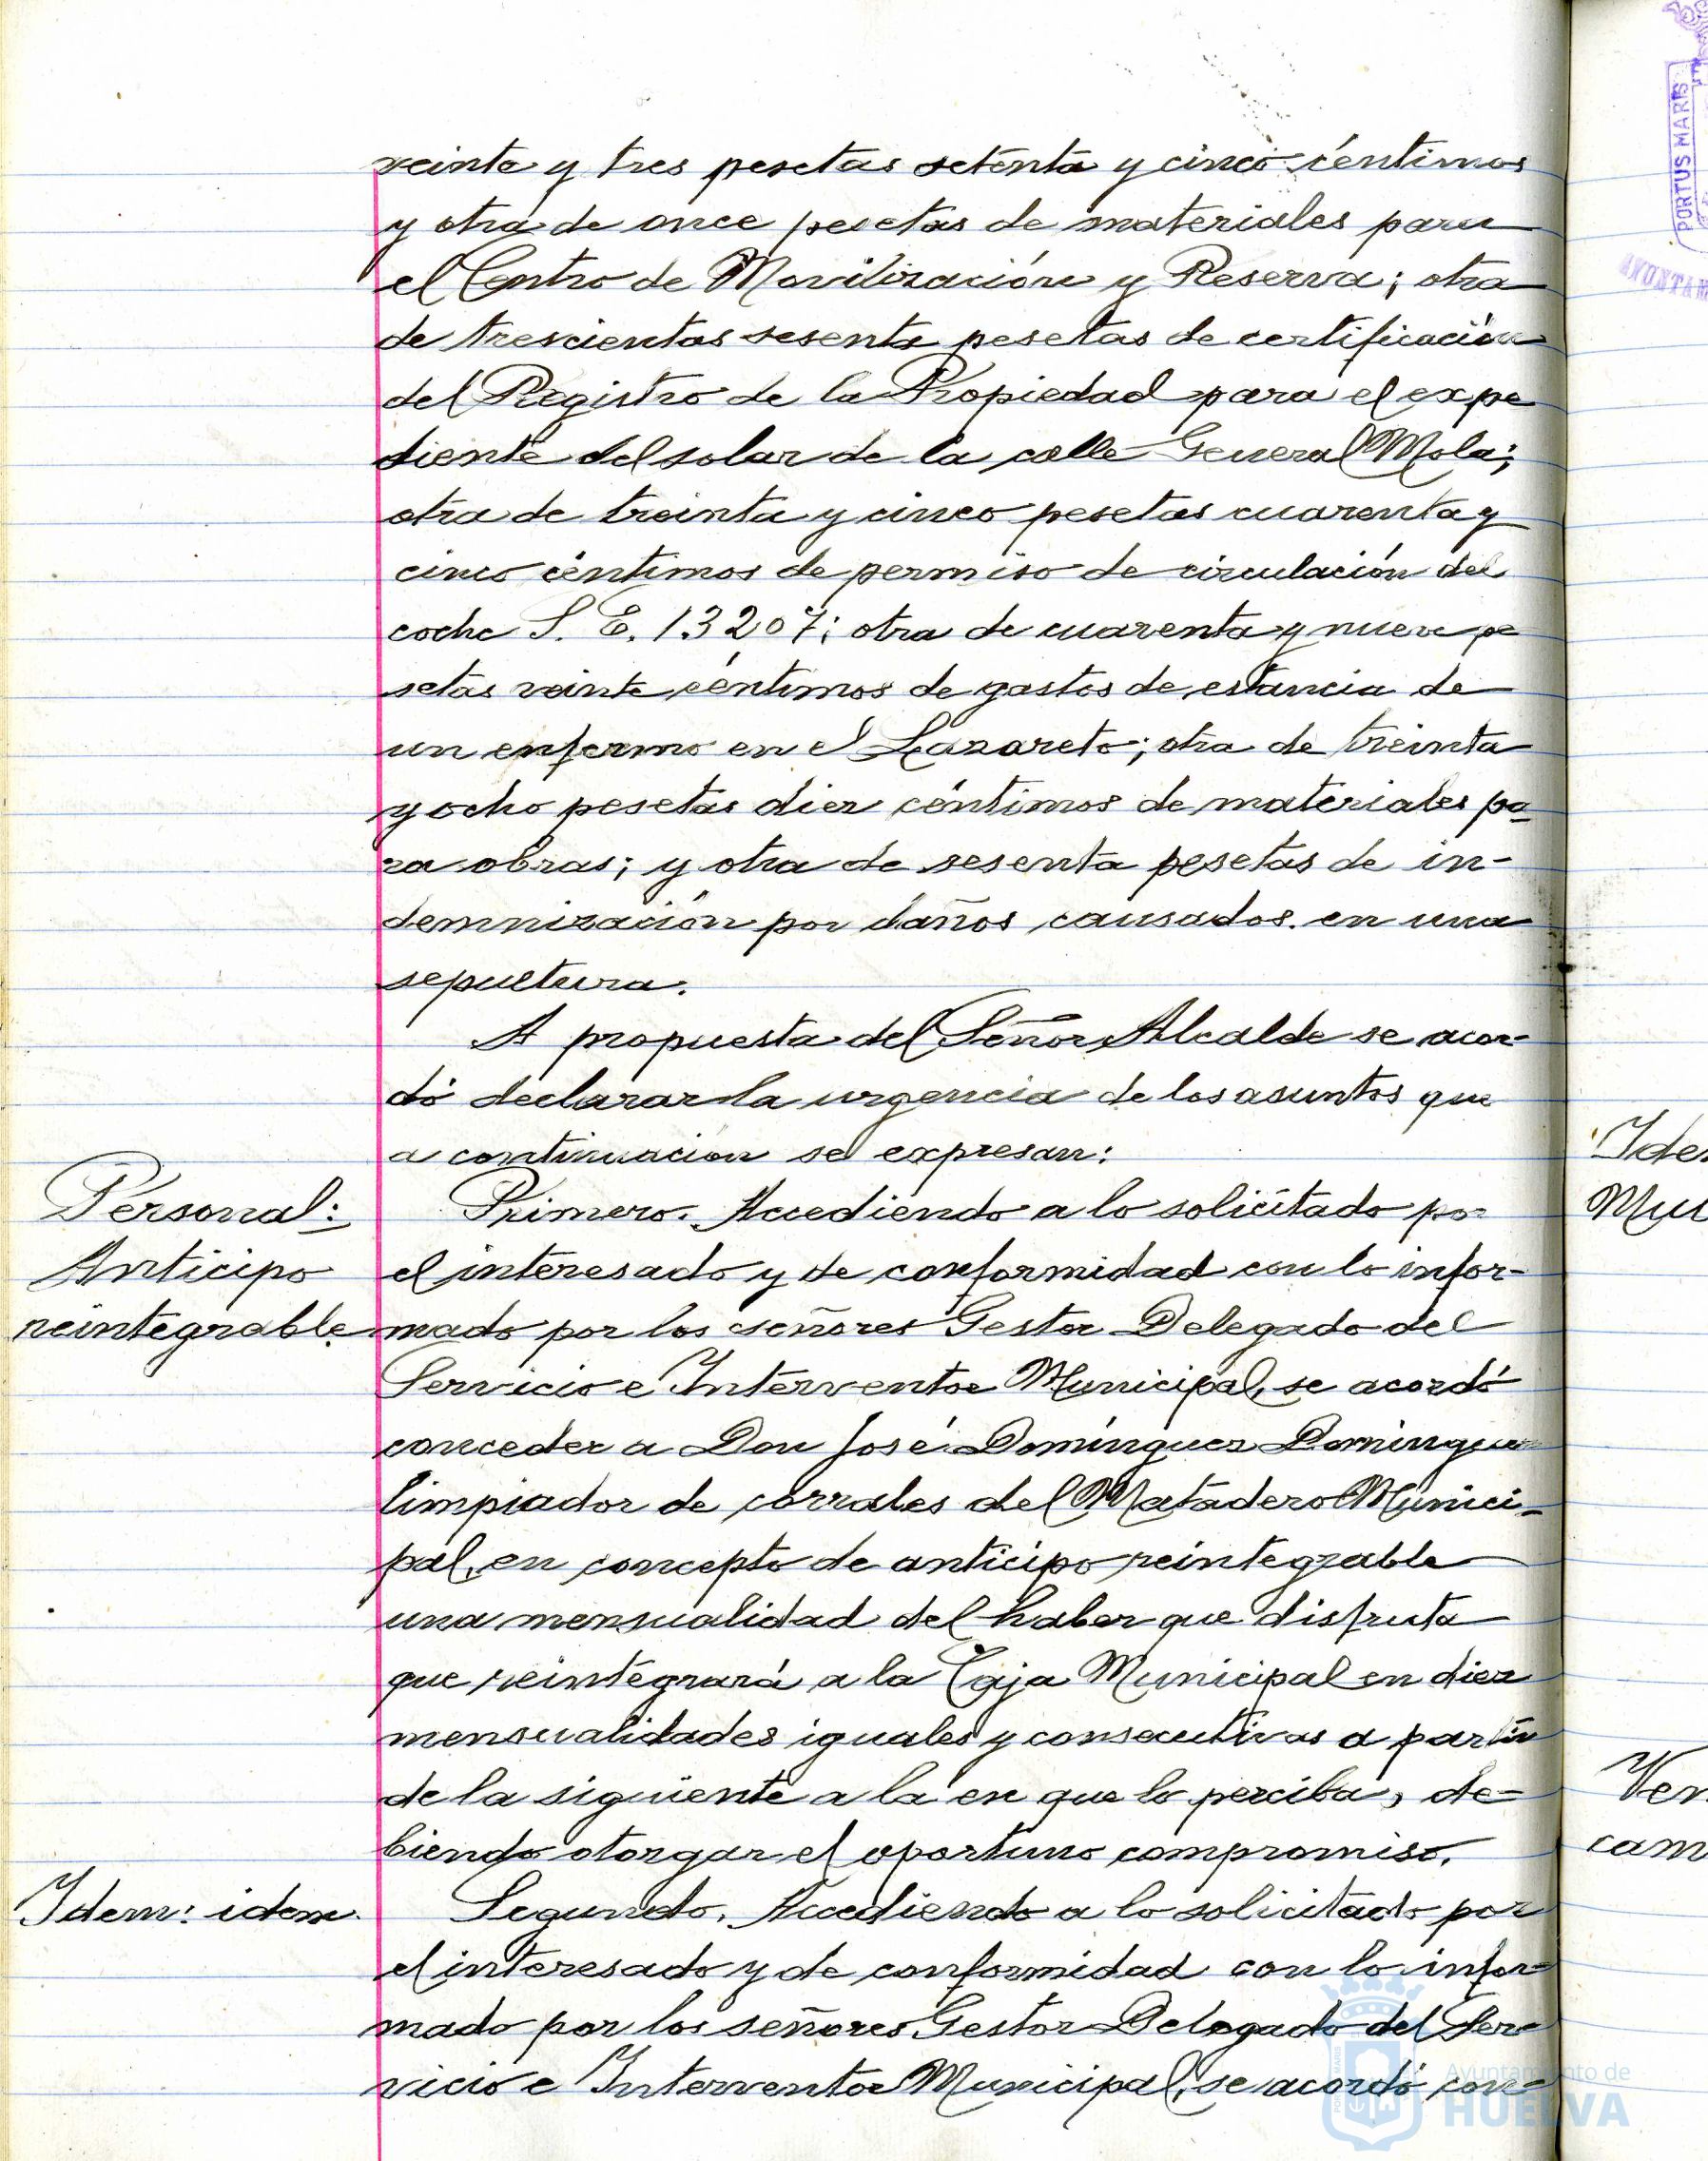 veinte y tres pesetas setenta y cinco céntimos
y otra de once pesetas de materiales para
el Centro de Movilización y Reserva; otra
de trescientas sesenta pesetas de certificación
del Registro de la Propiedad para el expe
diente del solar de la calle General Mola;
otra de treinta y cinco pesetas cuarenta y
cinco céntimos de permiso de circulación del
coche S. E. 13207; otra de cuarenta y nueve pe
setas veinte céntimos de gastos de estancia de
un enfermo en el Lazareto; otra de treinta
y ocho pesetas diez céntimos de materiales pa
ra obras; y otra de sesenta pesetas de in-
demnización por daños causados en una
sepultura.
A propuesta del Señor Alcalde se acor-
dó declarar la urgencia de los asuntos que
a continuación se expresan:
Personal:
Anticipo
reintegrable
Primero. Accediendo a lo solicitado por
el interesado y de conformidad con lo infor-
mado por los señores Gestor Delegado del
Servicio e Interventor Municipal, se acordó
conceder a Don José Domínguez Domínguez
limpiador de corrales del Matadero Munici-
pal, en concepto de anticipo reintegrable
una mensualidad del haber que disfruta
que reintegrará a la Caja Municipal en diez
mensualidades iguales y consecutivas a partir
de la siguiente a la en que lo perciba, de-
biendo otorgar el oportuno compromiso.
Idem: idem.
Segundo. Accediendo a lo solicitado por
el interesado y de conformidad con lo infor-
mado por los señores Gestor Delegado del Ser-
vicio e Interventor Municipal, se acordó con-
PORTUS MARIS
Ayuntamiento de
HUELVA